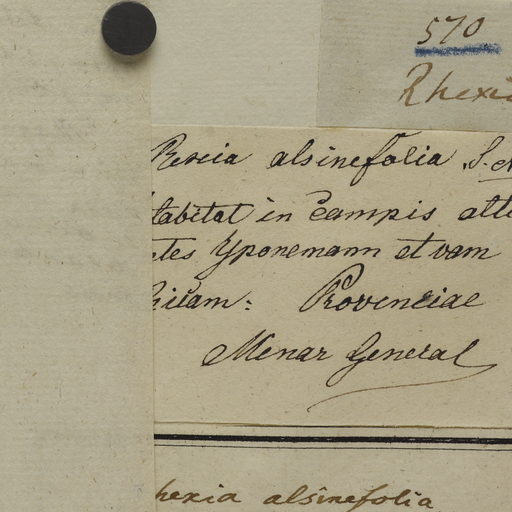 570
Rhexia
Rexia alsinefolia S.
Habitat in campis alti
tes Yponemann et vam
ricam: Provinciae
Menar General
hexia alsinefolia